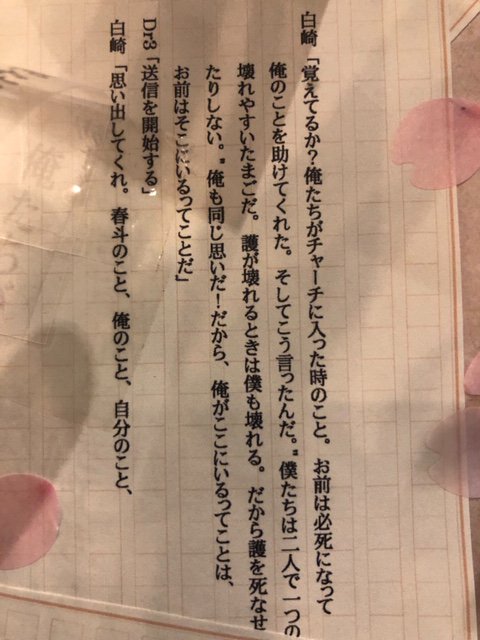 白崎「覚えてるか？俺たちがチャーチに入った時のこと。お前は必死になって
俺のことを助けてくれた。そしてこう言ったんだ。"僕たちは二人で一つの
壊れやすいたまごだ。護が壊れるときは僕も壊れる。だから護を死なせ
たりしない。"俺も同じ思いだ！だから、俺がここにいるってことは、
お前はそこにいるってことだ」
Dr3「送信を開始する」
白崎「思い出してくれ。春斗のこと、俺のこと、自分のこと、